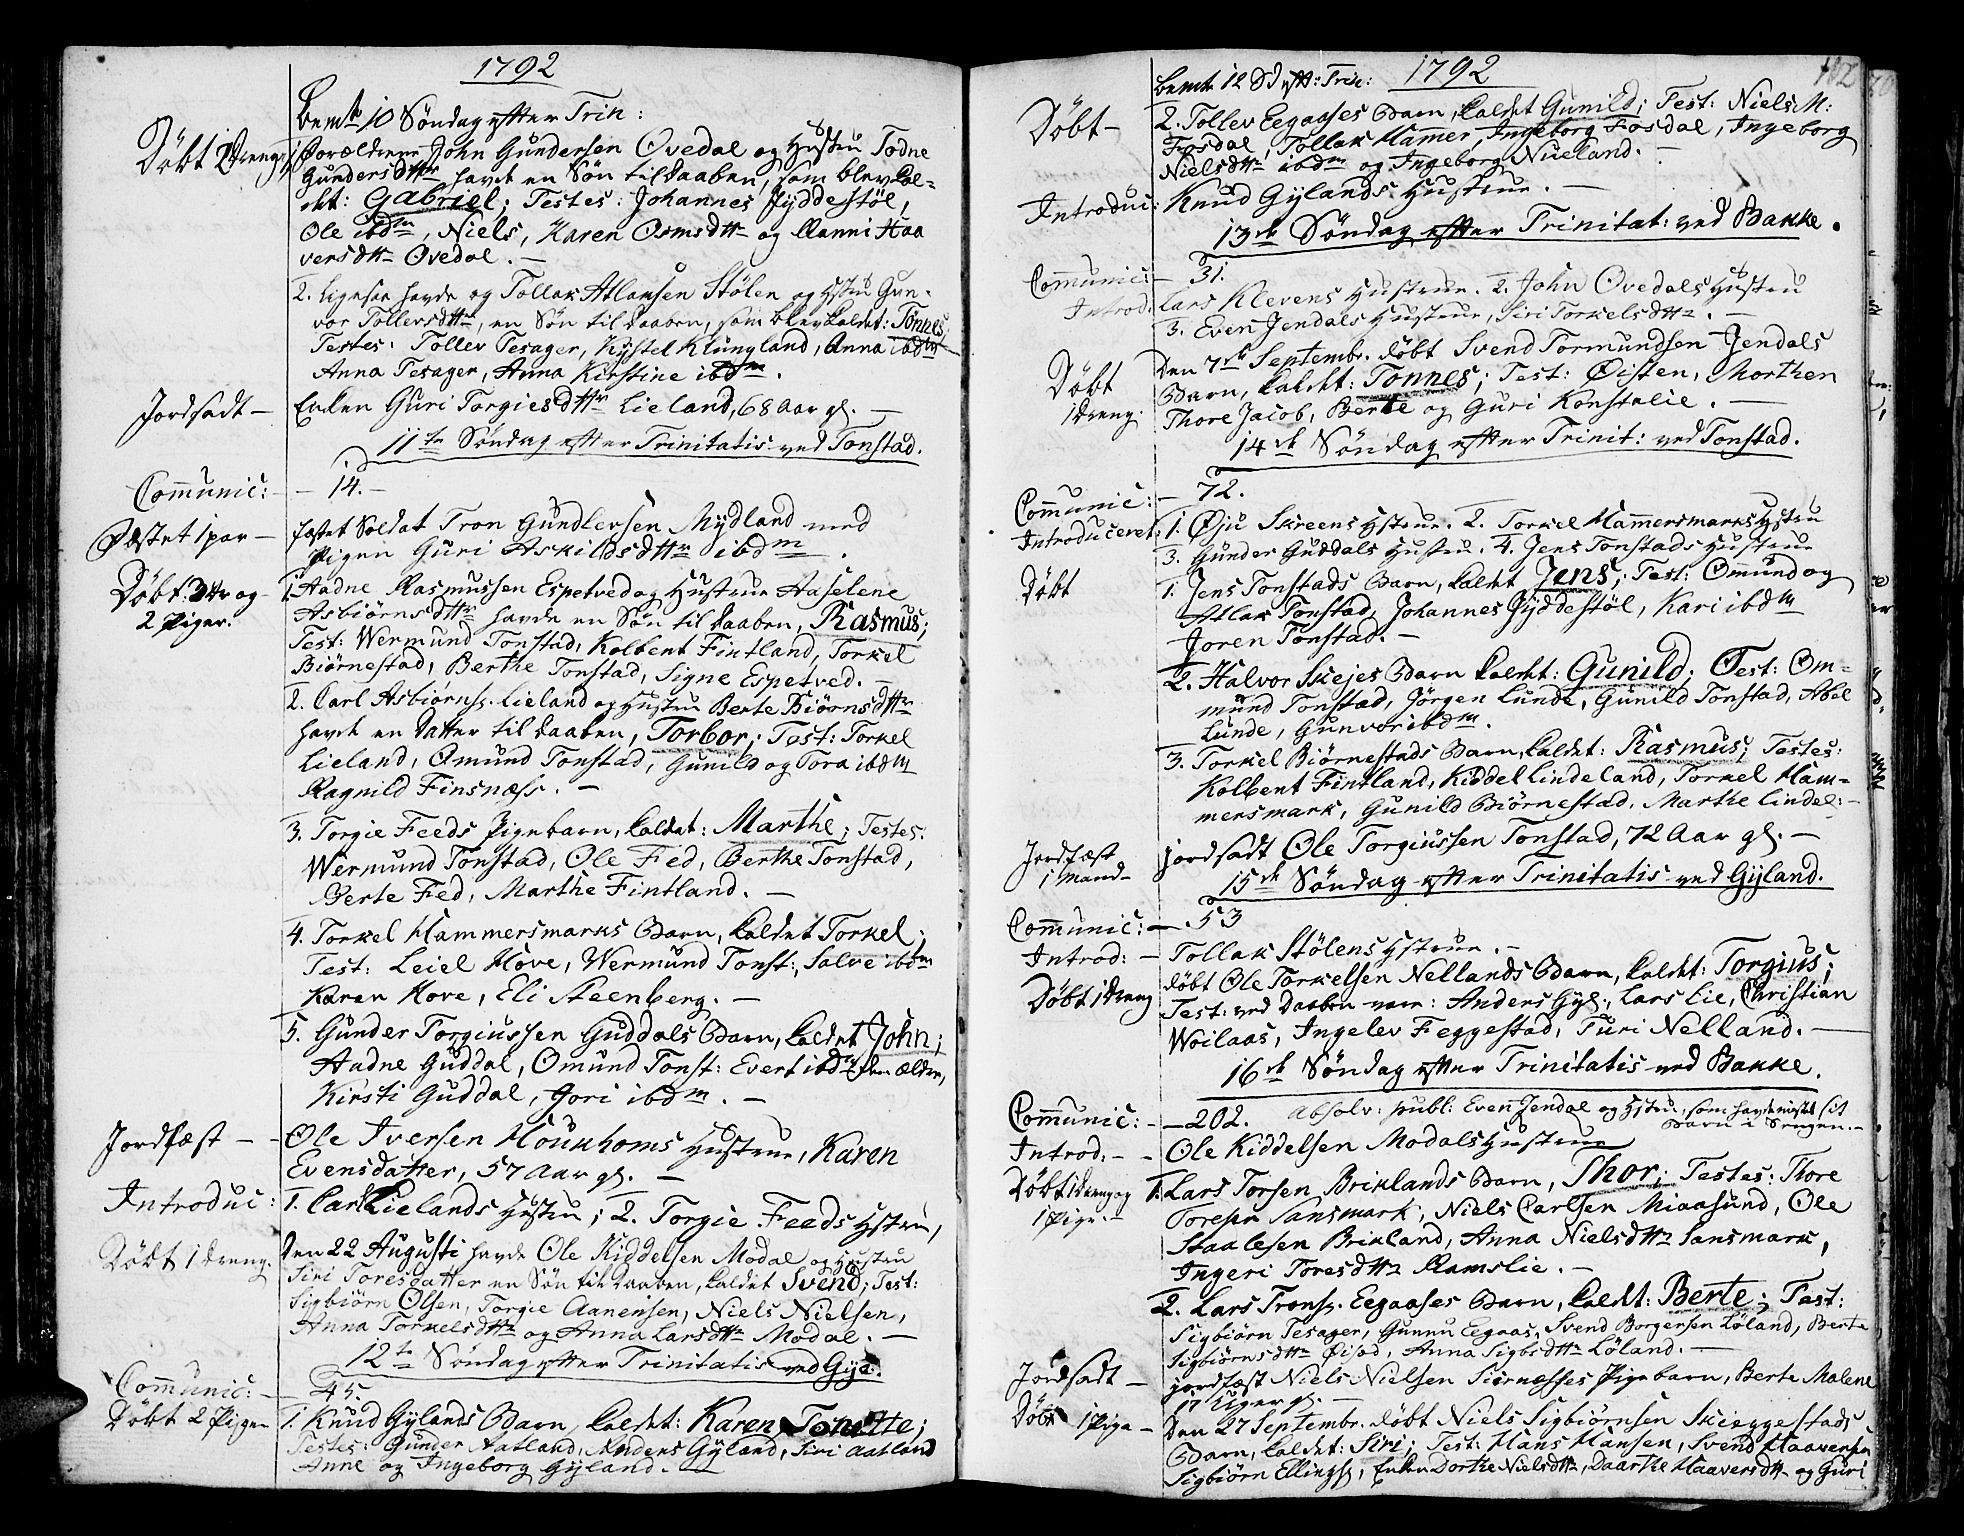 1792
bemte 10 Søndag efter Trin:
Døbt 2 Drenge
1. Forældrene John Gundersen Ovedal og Hustru Todne
Gundersdttr havde en Søn til Daaben, som blev kal-
det: Gabriel; Testes: Johannes Jyddestöl,
Ole ibdm, Niels, Karen Osmsdttr og Ranni Haa
versdttr Ovedal. –
2. Ligesaa havde og Tollak Atlaksen Stölen og Hstru Gun-
vor Tollevsdttr, en Søn til Daaben, som blev kaldet: Tönnes
Testes: Tollev Tesager, Kystel Klungland, Anna ibdm
Anna Tesager, Anna Kirstine ibdm.
Jordsadt –
Enken Guri Torgiesdttr Lieland, 68 Aar gl. –
11te Søndag efter Trinitatis ved Tonstad.
Comunic: –
– 14. –
Fæstet 1 par –
fæstet Soldat Tron Gundlersen Mydland med
Pigen Guri Askildsdttr ibdm.
Døbt 3 dr og
2 Piger.
1. Aadne Rasmussen Espetved og Hustrue Aaselene
Asbiörnsdttr havde en Søn til Daaben, Rasmus;
Test: Wermund Tonstad, Kolbent Fintland, Torkel
Biörnestad, Berthe Tonstad, Signe Espetved. –
2. Carl Asbiörns. Lieland og Hustru Berte Biörnsdttr
havde en Datter til Daaben, Torbor; Test: Torkel
Lieland, Omund Tonstad, Gunild og Tora ibdm
Ragnild Finsnæss. –
3. Torgie Feeds Pigebarn, kaldet: Marthe; Testes:
Wermund Tonstad, Ole Fed, Berthe Tonstad,
Berte Fed, Marthe Fintland. –
4. Torkel Hammersmarks Barn, kaldet Torkel;
Test: Leiel Hove, Wermund Tonst:, Salve ibdm
Karen Hove, Eli Steenberg. –
5. Gunder Torgiussen Guddals Barn, kaldet John;
Aadne Guddal, Omund Tonst: Evert ibdm den ældre,
Kirsti Guddal, Jori ibdm. –
Jordfæst – –
Ole Iversen Houkhoms Hustrue, Karen
Evensdatter, 57 Aar gl. –
Introduc:
1. Carl Lielands Hustru; 2. Torgie Feeds Hstru,
Døbt 1 dreng.
Den 22 Augusti havde Ole Kiddelsen Modal og Hustru
Siri Toresdatter en Søn til Daaben, kaldet Svend; Test:
Sigbiörn Olsen, Torgie Aanensen, Niels Nielsen,
Anna Torkelsdttr og Anna Larsdttr Modal. –
12te Søndag efter Trinitatis ved Gya.
Comunic: –
– 45.
Døbt 2 Piger
1. Knud Gylands Barn, kaldet: Karen Tonette;
Testes: Gunder Aatland, Anders Gyland, Siri Aatland
Anne og Ingeborg Gyland. –
1792
102
bemte 12 S eft: Trin:
Døbt –
2. Tollev Eegaases Barn, kaldet Gunild; Test: Niels M:
Fosdal, Tollak Hamer, Ingeborg Fosdal, Ingeborg
Nielsdttr ibdm og Ingeborg Nueland. –
Introduc:
Knud Gylands Hustrue. –
13de Søndag efter Trinitat: ved Bakke.
Comunic: –
31.
Introd.
Lars Klevens Hustrue. 2. John Ovedals Hustru
3. Even Jendals Hustrue, Siri Torkelsdttr. –
Døbt
1 dreng.
Den 7de Septembr. døbt Svend Tormundsen Jendals
Barn, kaldet: Tönnes; Test: Öisten, Morthen
Thore Jacob, Berte og Guri Konstalie. –
14de Søndag efter Trinit: ved Tonstad.
Comunic: –
72.
Introduceret:
1. Öju Skreens Hstrue. 2. Torkel Hamersmarks Hstru
3. Gunder Guddals Hustru. 4. Jens Tonstads Hustrue
Døbt
1. Jens Tonstads Barn, kaldet Jens; Test: Omund og
Atlak Tonstad, Johannes Jyddestöl, Kari ibdm
Joren Tonstad. –
2. Halvor Skejes Barn kaldet: Gunild; Test: Om-
mund Tonstad, Jörgen Lunde, Gunild Tonstad, Abel
Lunde, Gunvor ibdm.
3. Torkel Biörnestads Barn, kaldet: Rasmus; Testes:
Kolbent Fintland, Kiddel Lindeland, Torkel Ham-
mersmark, Gunild Biörnestad, Marthe Lindel: –
Jordfæst
1 Mand –
jordsadt Ole Torgiussen Tonstad, 72 Aar gl. –
15de Søndag efter Trinitatis ved Gyland.
Comunic: –
53
Introd: –
Tollak Stölens Hstrue. –
Døbt 1 dreng
døbt Ole Torkelsen Nellands Barn, kaldet: Torgius;
Test: ved Daaben vare: Anders Gyl:, Lars Lie, Christian
Woilaas, Ingelev Feggestad, Turi Nelland. –
16de Søndag efter Trinitatis ved Bakke.
Comunic: –
– 202.
Absolv: publ: Even Jendal og Hstru, som havde mistet sit
Barn i Sengen. –
Introd: – –
Ole Kiddelsen Modals Hustrue
Døbt 1 dreng og
1 Pige. –
1. Lars Torsen Briklands Barn, Thor; Testes: Thore
Toresen Sansmark, Niels Carlsen Miaasund, Ole
Staalesen Brikland, Anna Nielsdttr Sansmark,
Ingeri Toresdttr Ramslie. –
2. Lars Trons. Eegaases Barn, kaldet: Berte; Test:
Sigbiörn Tesager, Gunnu Eegaas, Svend Borgersen Löland, Berte
Sigbiörnsdttr Öisod, Anna Sigbsdttr Löland. –
Jordsadt –
jordfæst Niels Nielsen Tiörnæsses Pigebarn, Berte Malene
17 Uger gl. –
Døbt 1 Pige –
Den 27 Septembr. døbt Niels Sigbiörnsen Skieggestads
Barn, kaldet: Siri; Test: Hans Hansen, Svend Haavensen
Sigbiörn Ellings, Enken Dorthe Nielsdttr, Daarthe Haaversdttr og Guri